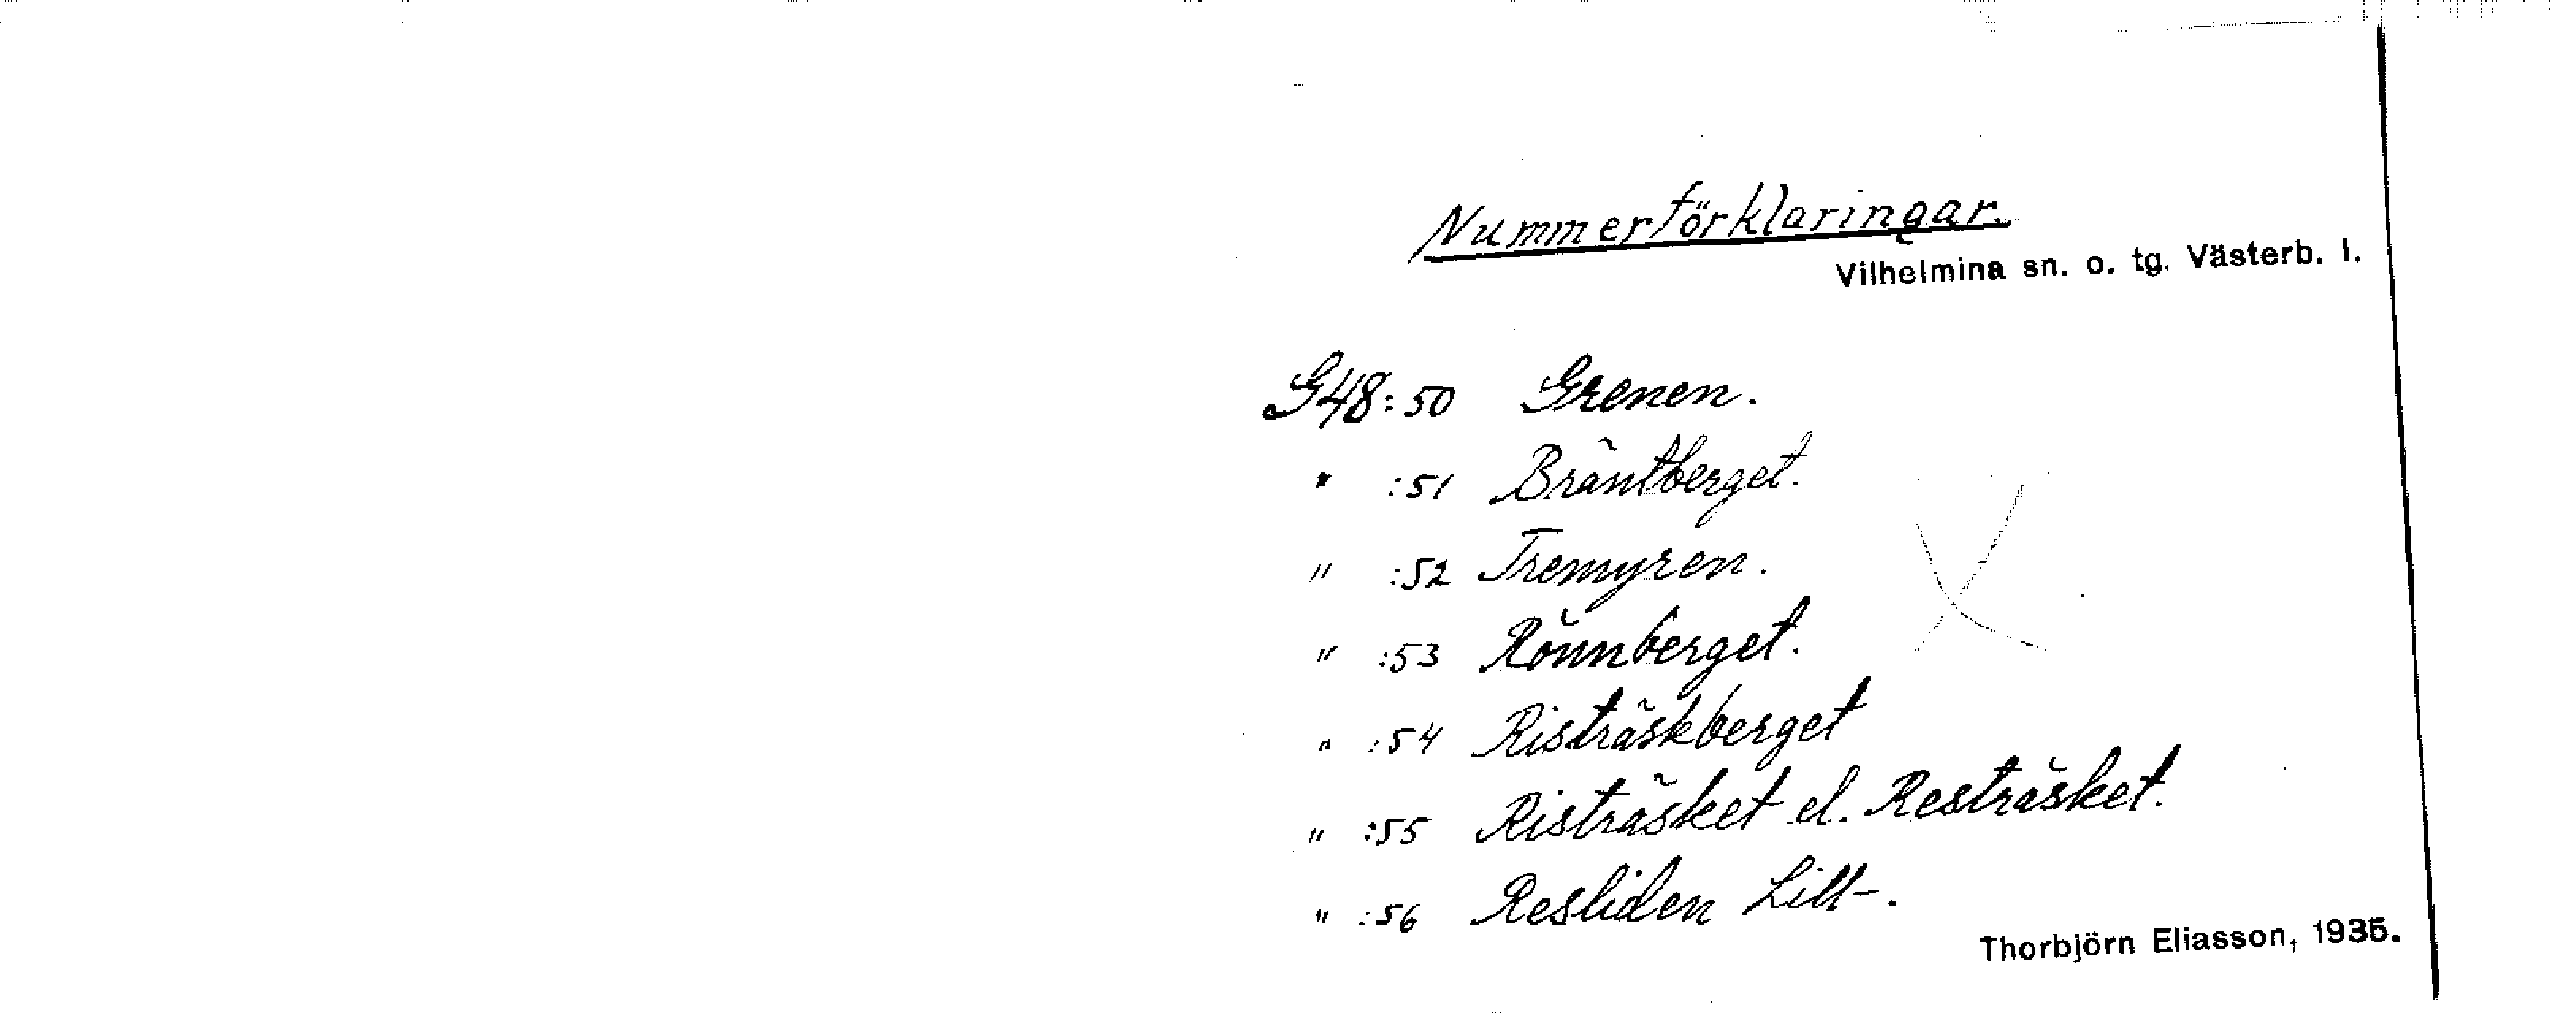 Nummerförklaringar.
Vilhelmina sn. o. tg. Västerb. l.
G48:50 Grenen.
" :51 Bräntberget.
" :52 Tremyren.
" :53 Rönnberget.
" :54 Risträskberget
" :55 Risträsket el. Resträsket.
" :56 Resliden Lill-.
Thorbjörn Eliasson, 1935.